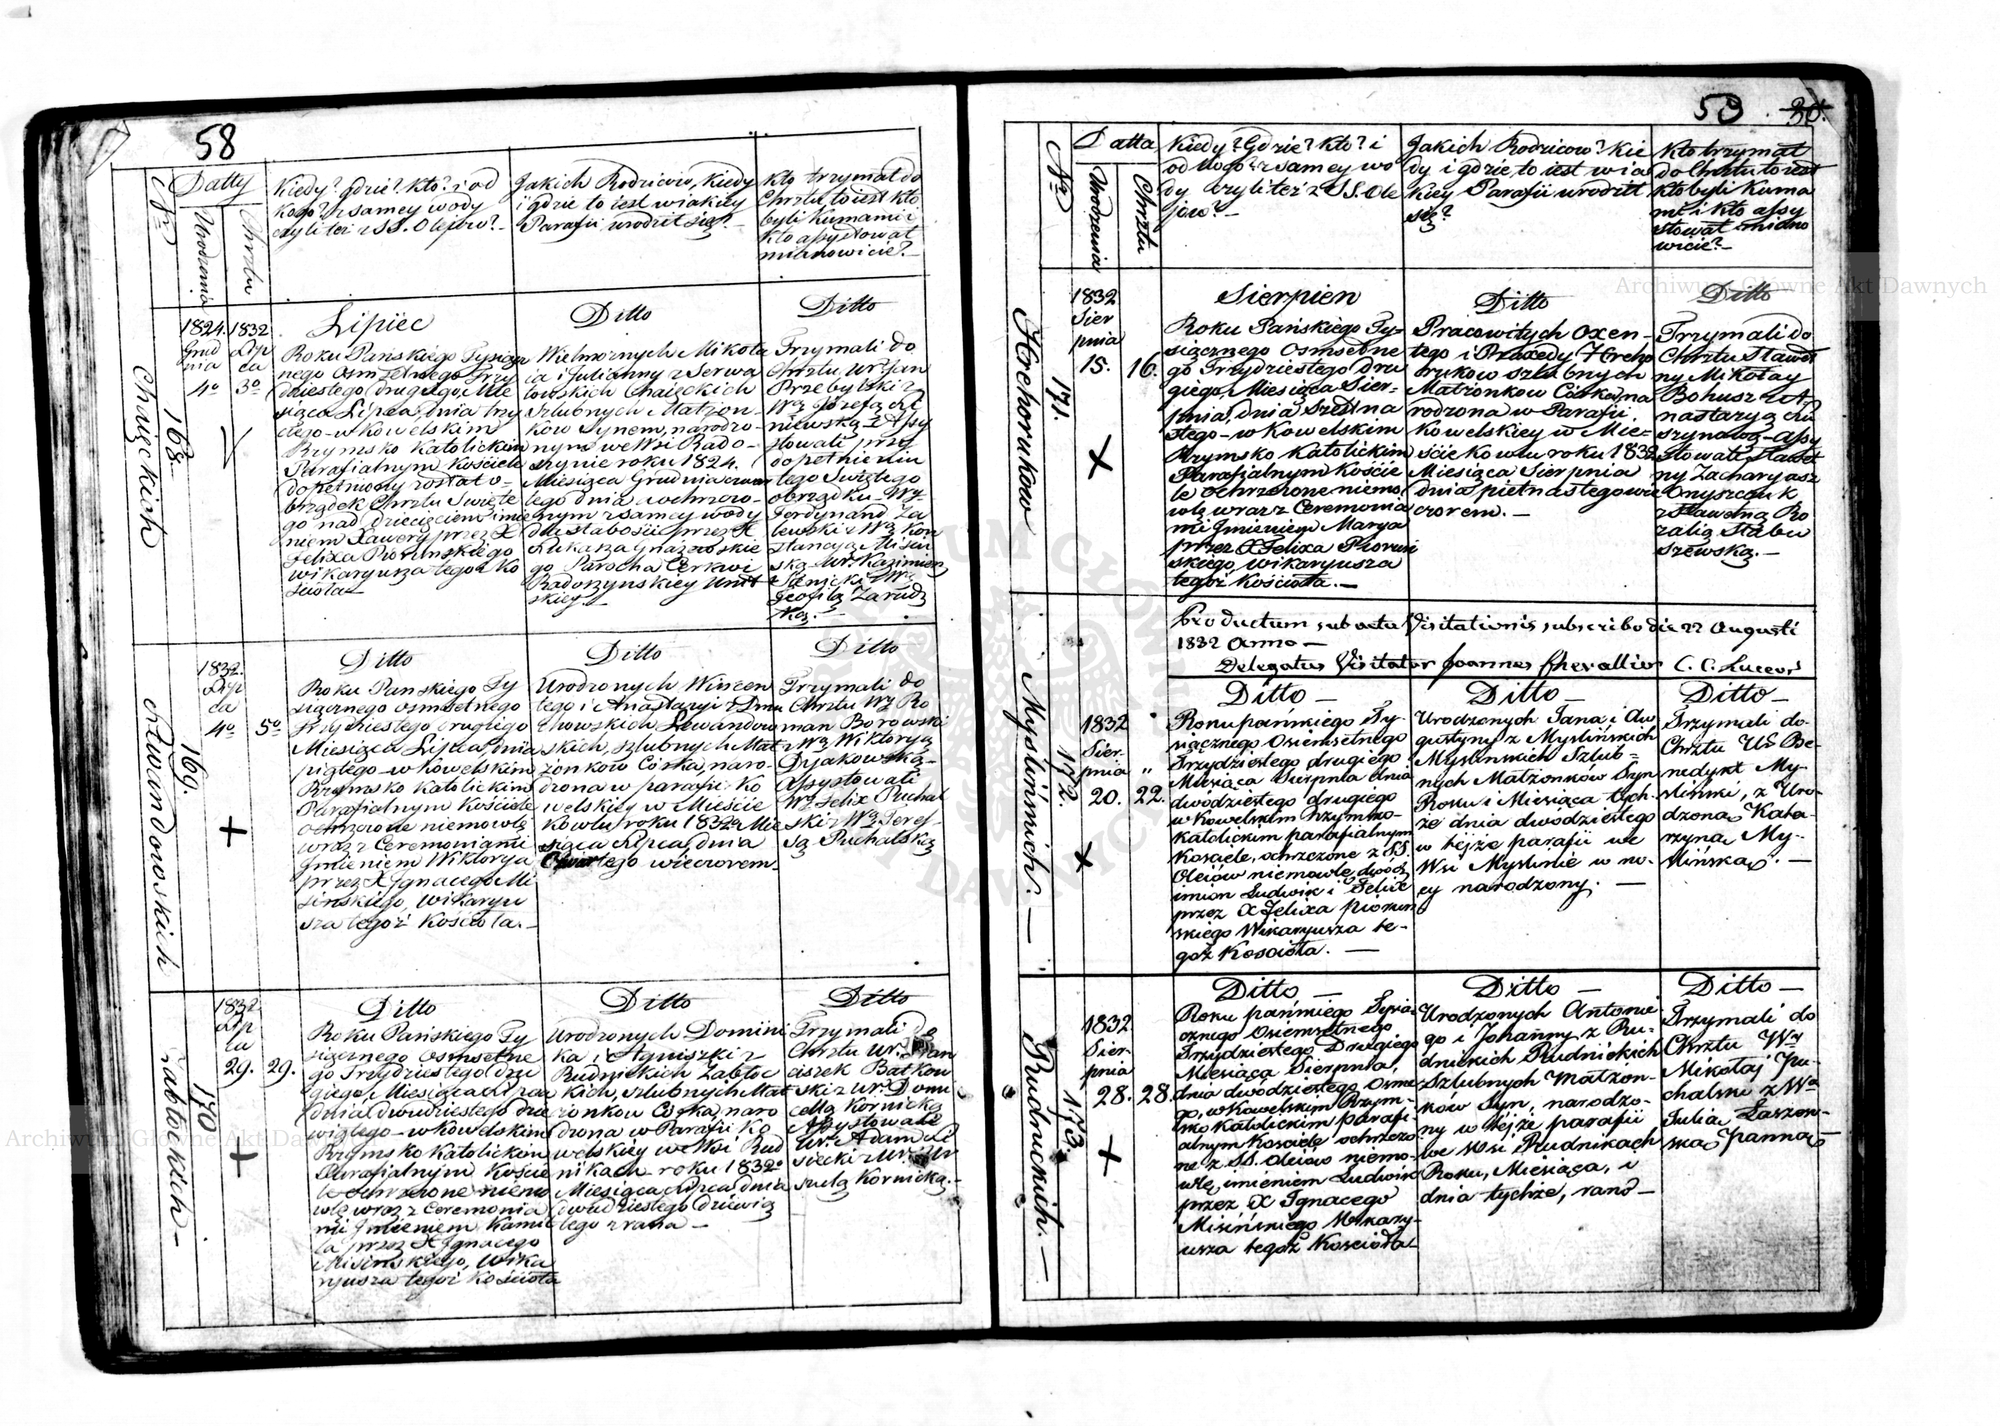 58
Datty
i Nr
Urodzenia
Chrztu
Kiedy? gdzie? kto? i od
kogo? z samey wody
czyli też z SS. Olejów?
Jakich Rodziców, kiedy
i gdzie to iest w iakiey
Parafii urodził się?
Kto trzymał do
Chrztu to iest kto
byli Kumami i
kto assystował
mianowicie?
Chaięckich
168.
1824.
Grud
nia
4º
1832
Lip
ca
3º
Lipiec
Roku Pańskiego Tysiącz
nego Osmsetnego Trzy
dziestego drugiego, Mie
siąca Lipca, dnia trze
ciego w Kowelskim
Rzymsko Katolickim
Parafialnym Kościele
dopełniony został o-
brządek Chrztu Święte
go nad dziecięciem imie
niem Xawery przez X
Felixa Piorunskiego
wikaryusza tegoż Ko
ścioła
Ditto
Wielmożnych Mikoła
ia i Julianny z Serwa
towskich Chaięckich
szlubnych Małżon-
ków Synem, narodzo-
nym we Wsi Rado-
szynie roku 1824.
Miesiąca Grudnia czwar
tego dnia a ochrzczo-
nym z samey wody
dla słabości przez X
Łukasza Gnazowskie
go Parocha Cerkwi
Radoszynskiey Unit
skiey
Ditto
Trzymali do
Chrztu Ur Jan
Przebylski z
Wą Józefą
niewską Assy
stowali przy
dopełnieniu
tego Świętego
obrządku Wy
Ferdynand Za
lewski z Wą Kon
stancyą Misiu
ską Ur. Kazimierz
Sienicki z Wą
Teofilą Zarudz
ką.
Lewandowskich
169.
1832.
Lip
ca
4º
5º
Ditto
Roku Pańskiego Ty
siącznego osmsetnego
Trzydziestego drugiego
Miesiąca Lipca, dnia
piątego w Kowelskim
Rzymsko Katolickim
Parafialnym Kościele
ochrzczone niemowlę
wraz z Ceremoniami
Imieniem Wiktorya
przez X Ignacego Mi
sińskiego, wikaryu
sza tegoż Kościoła.
Ditto
Urodzonych Wincen
tego i Anastazyi z Dmu
chowskich Lewandow
skich, szlubnych Mał
żonków Córka, naro-
dzona w parafii Ko
welskiey w Mieście
Kowlu roku 1832º Mie
siąca Lipca, dnia
Czwartego wieczorem
Ditto
Trzymali do
Chrztu Wy Ro
man Borowski
z Wą Wiktoryą
Dyakowską
Assystowali
Wy Felix Puchal
ski z Wą Teres-
są Puchalską
Zabłockich
170
1832.
Lip
ca
29.
29.
Ditto
Roku Pańskiego Ty
siącznego Osmsetne
go Trzydziestego dru
giego, Miesiąca Lipca
dnia dwudziestego dzie
wiątego w Kowelskim
Rzymsko Katolickim
Parafialnym Kościele
ochrzczone niemo
wlę wraz z Ceremonia
mi Imieniem Kamil
la przez X Ignacego
Misińskiego, Wika
ryusza tegoż Kościoła
Ditto
Urodzonych Domini
ka i Agniszki z
Rudnickich Zabłoc
kich, szlubnych Mał
żonków Córka, naro
dzona w Parafii Ko
welskiey we Wsi Rud
nikach roku 1832º
Miesiąca Lipca, dnia
dwudziestego dziewią
tego z rana
Ditto
Trzymali do
Chrztu Ur. Fran
ciszek Batkow
ski z Ur. Domi
cellą Kornicką
Assystowali
Ur. Adam Li
siecki z Ur. Ur
sulą Kornicką.
59
30.
Nr
Datta
Urodzenia
Chrztu
Kiedy? Gdzie? kto? i
od kogo? z samey wo
dy czyli też z SS. Ole
jów?
Jakich Rodziców? kie
dy i gdzie to iest w ia
kiey Parafii urodził
się?
Kto trzymał
do Chrztu to iest
kto byli Kuma
mi i kto assy
stował miano
wicie?
Horchoruków
171.
1832
Sier
pnia
15.
16.
Sierpien
Roku Pańskiego Ty-
siącznego Osmsetne
go Trzydziestego dru
giego, Miesiąca Sier-
pnia, dnia szesna
stego w Kowelskim
Rzymsko Katolickim
Parafialnym Koście
le ochrzczone niemo
wlę wraz z Ceremonia
mi Imieniem Marya
przez X Felixa Piorun
skiego, wikaryusza
tegoż Kościoła.
Ditto
Pracowitych Oxen-
tego i Praxedy Horcho
ruków szlubnych
Małżonków Córka, na
rodzona w Parafii
Kowelskiey w Mie-
ście Kowlu roku 1832
Miesiąca Sierpnia
dnia piętnastego wie
czorem.
Ditto
Trzymali do
Chrztu Sławet
ny Mikołay
Bohusz z A
nastazyą
szynową Assy
stowali Sławet
ny Zacharyasz
Onyszczuk
z Sławetną Ro
zalią Stabu
szewską.
Productum sub actu Visitationis subscribo die 22 Augusti
1832 Anno
Delegatus Visitator Joannes Chevallier C. C. Luceor
Myślińskich.
172.
1832
Sier-
pnia
20.
"
22.
Ditto
Roku pańskiego Ty-
siącznego Osiemsetnego
Trzydziestego drugiego
Miesiąca Sierpnia dnia
dwudziestego drugiego
w Kowelskim Rzymsko-
Katolickim parafialnym
Kościele, ochrzczone z SS.
Oleiów niemowlę, dwóch
imion Ludwik i Felix
przez X Felixa Piorun
skiego Wikaryusza te-
goż Kościoła.
Ditto
Urodzonych Jana i Au
gustyny z Myślińskich
Myślińskich Szlub-
nych Małżonków Syn
Roku i Miesiąca tych-
że dnia dwudziestego
w tejże parafii we
Wsi Myślinie w no-
cy narodzony.
Ditto
Trzymali do-
Chrztu Ur Be-
nedykt My-
śliński, z Uro-
dzoną Kata-
rzyną My-
ślińską.
Rudnickich.
173.
1832
Sier-
pnia
28.
28.
Ditto
Roku pańskiego Tysią
cznego Osiemsetnego
Trzydziestego Drugiego
Miesiąca Sierpnia,
dnia dwudziestego Osme
go, w Kowelskim Rzym-
sko Katolickim parafi-
alnym Kościele ochrzczo
ne z SS. Oleiów niemo-
wlę, imieniem Ludwik
przez X Ignacego
Misińskiego Wikary-
usza tegoż Kościoła
Ditto
Urodzonych Antonie
go i Johanny z Ru-
dnickich Rudnickich
Szlubnych Małżon-
ków Syn, narodzo-
ny w tejże parafii
we Wsi Rudnikach
Roku, Miesiąca, i
dnia tychże, rano
Ditto
Trzymali do
Chrztu Wy
Mikołaj Pu-
chalski z Wą
Julią Laszew-
ską Panną
Archiwum Główne Akt Dawnych
Archiwum Główne Akt Dawnych